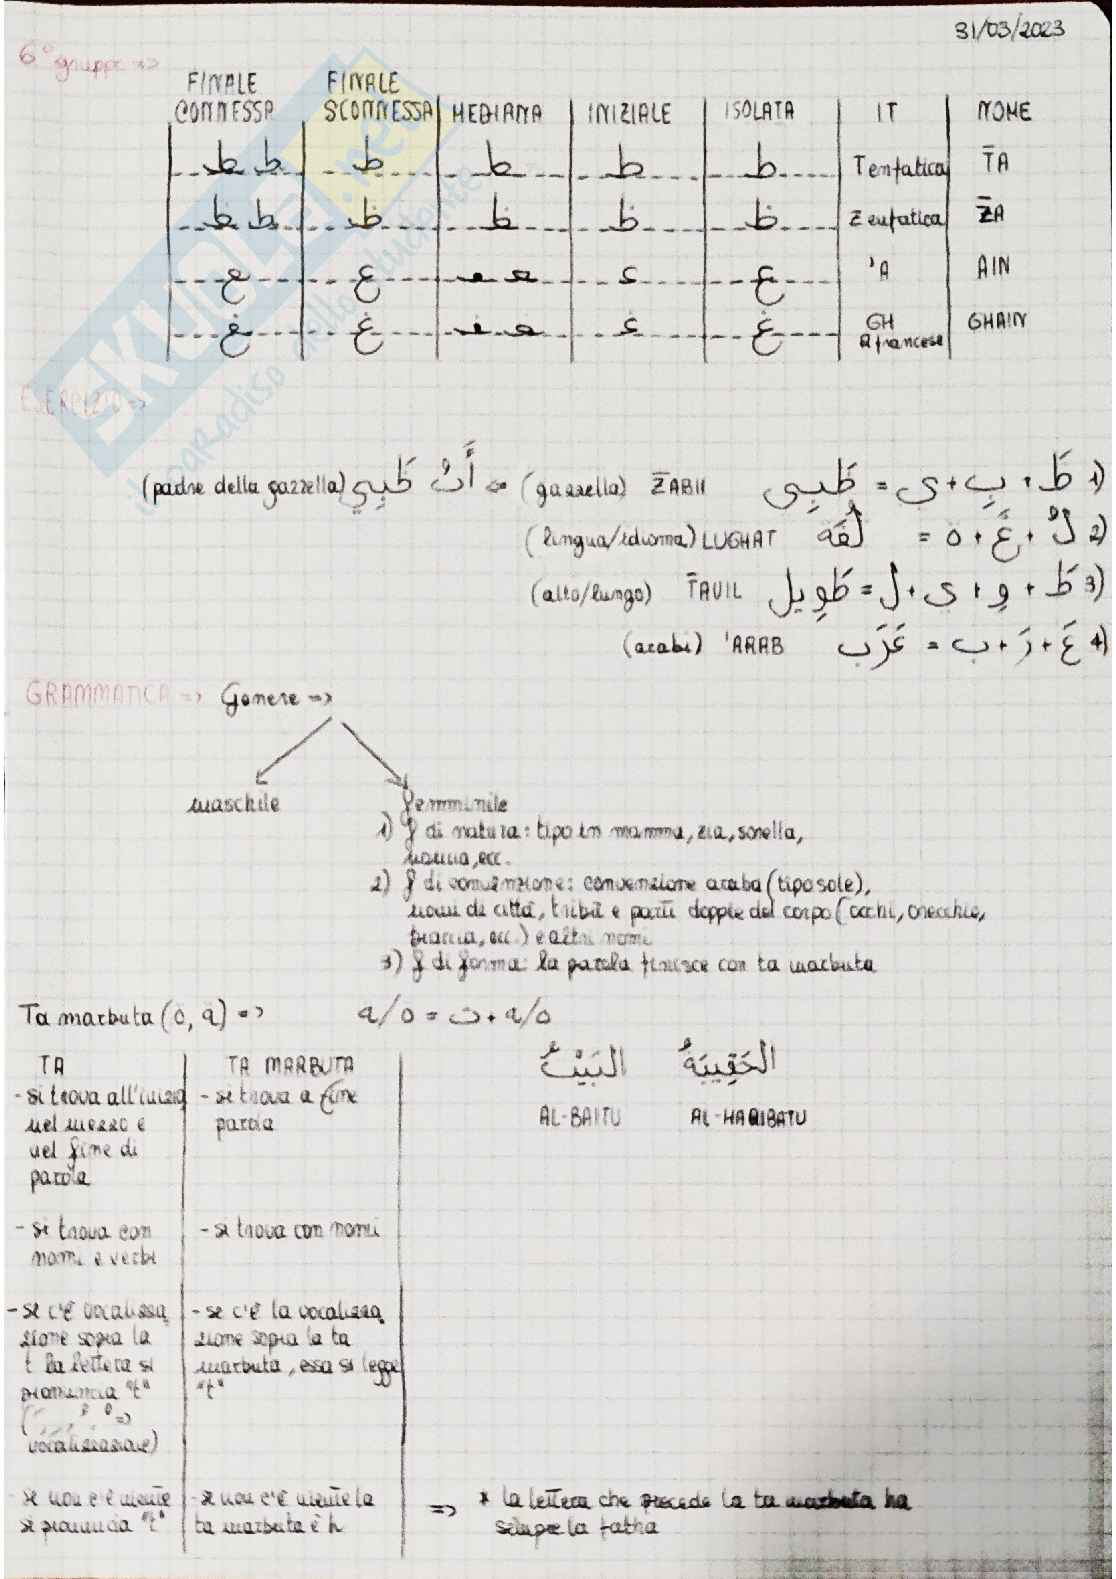 31/03/2023
6° gruppo =>
FINALE CONNESSA | FINALE SCONNESSA | MEDIANA | INIZIALE | ISOLATA | IT | NOME
ط ط | ط | ط | ط | ط | T enfatica | T̄A
ظ ظ | ظ | ظ | ظ | ظ | Z enfatica | Z̄A
ـع | ع | ـعـ ـعـ | عـ | ع | 'A | AIN
ـغ | غ | ـغـ ـغـ | غـ | غ | GH R francese | GHAIN
ESERCIZIO =>
1) ظَ + بِ + ي = ظَبِي Z̄ABII (gazzella) => أَبُ ظَبِي (padre della gazzella)
2) لُ + غَ + ة = لُغَة LUGHAT (lingua/idioma)
3) طَ + وِ + ي + ل = طَوِيل T̄AUIL (alto/lungo)
4) عَ + رَ + ب = عَرَب 'ARAB (arabi)
GRAMMATICA => Genere =>
maschile
femminile
1) f di natura: tipo in mamma, zia, sorella,
nonna, ecc.
2) f di convenzione: convenzione araba (tipo sole),
nomi di città, tribù e parti doppie del corpo (occhi, orecchie,
braccia, ecc.) e altri nomi
3) f di forma: la parola finisce con ta marbuta
Ta marbuta (ة, ـة) =>
ـة/ة = ت + ـة/ة
TA | TA MARBUTA
- si trova all'inizio
nel mezzo e
nel fine di
parola
- si trova a fine
parola
الحَقِيبَةُ
البَيْتُ
AL-BAITU
AL-HAQIBATU
- si trova con
nomi e verbi
- si trova con nomi
- se c'è vocalizza
zione sopra la
t la lettera si
pronuncia "t"
=>
vocalizzazione)
- se c'è la vocalizza
zione sopra la ta
marbuta, essa si legge
"t"
- se non c'è niente
si pronuncia "t"
- se non c'è niente la
ta marbuta è h
=> * la lettera che precede la ta marbuta ha
sempre la fatha
SKUOLA.net
il paradiso dello studente